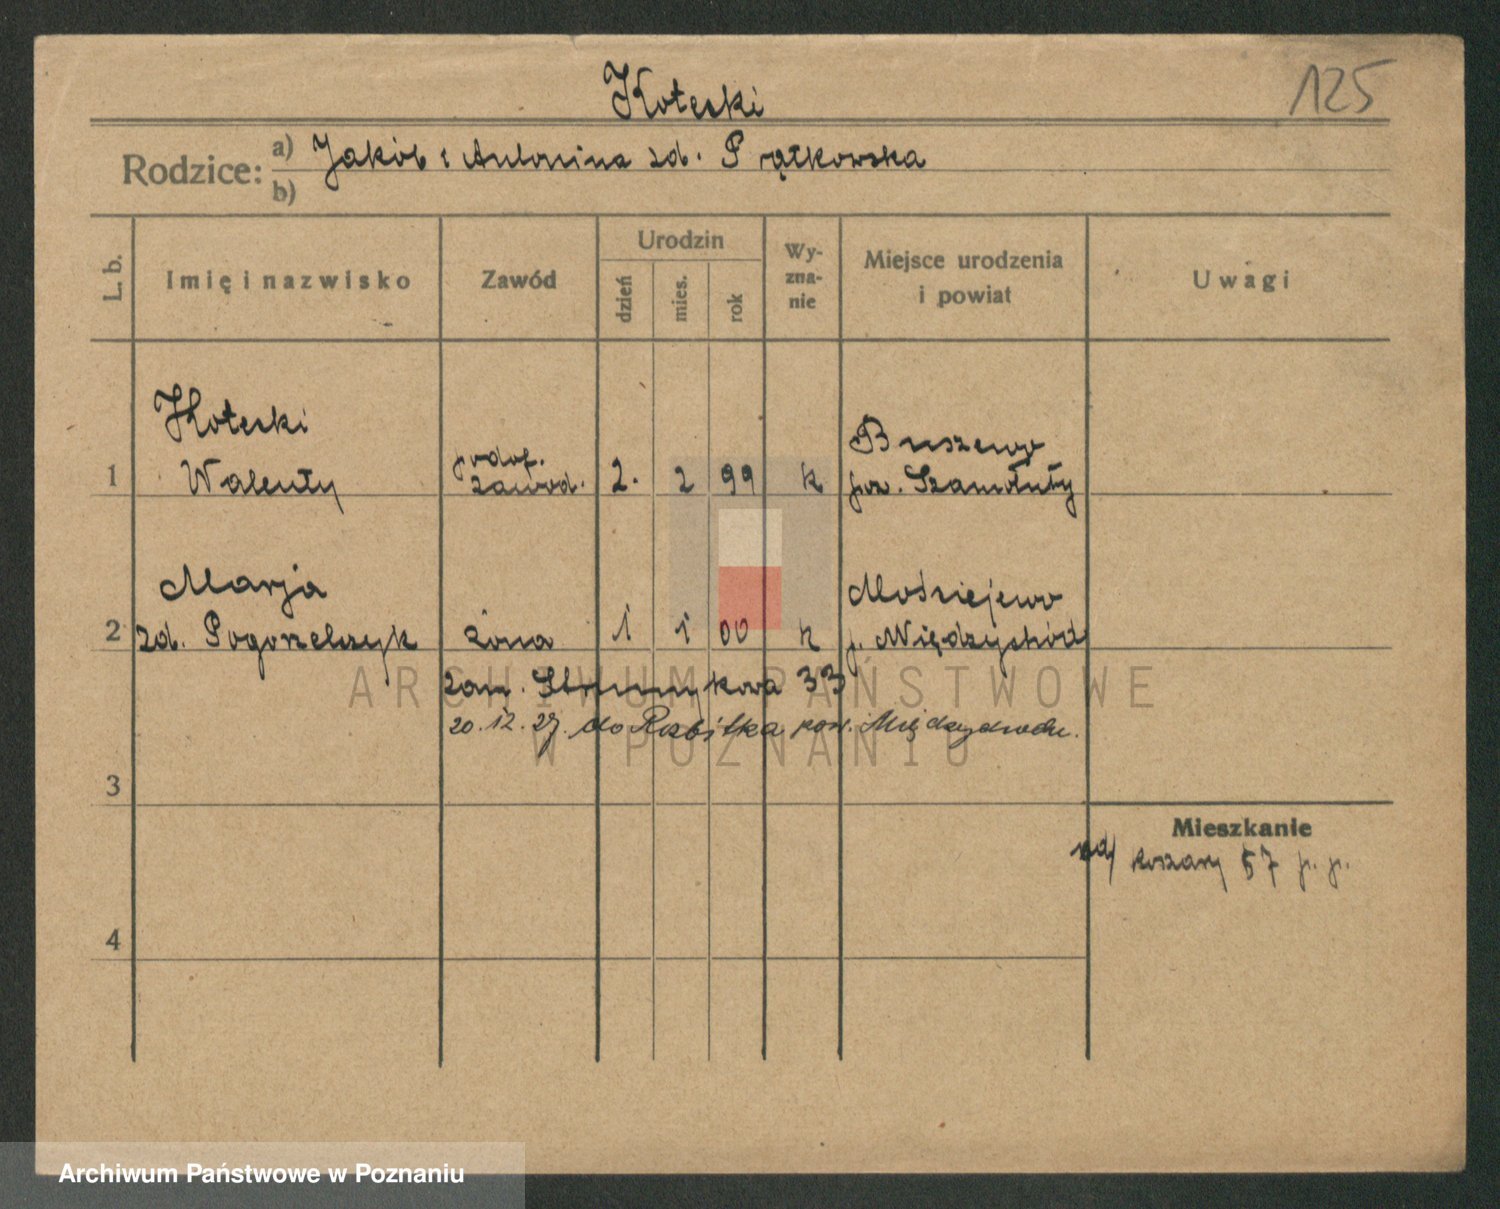 Kotecki
125
Rodzice: a) Jakób i Antonina zd. Piątkowska
b)
L. b.
Imię i nazwisko
Zawód
Urodzin
dzień
mies.
rok
Wy-
zna-
nie
Miejsce urodzenia
i powiat
Uwagi
Kotecki Buszewo
1 Walenty podof. zawod. 2. 2 99 k pow. Szamotuły
Marja
2 zd. Pogorzelczyk żona 1 1 00 k p. Międzychód
zam. Strumykowa 33
20. 12. 27. do pow.
3
Mieszkanie
koszary 57 p. p.
4
ARCHIWUM PAŃSTWOWE
W POZNANIU
Archiwum Państwowe w Poznaniu